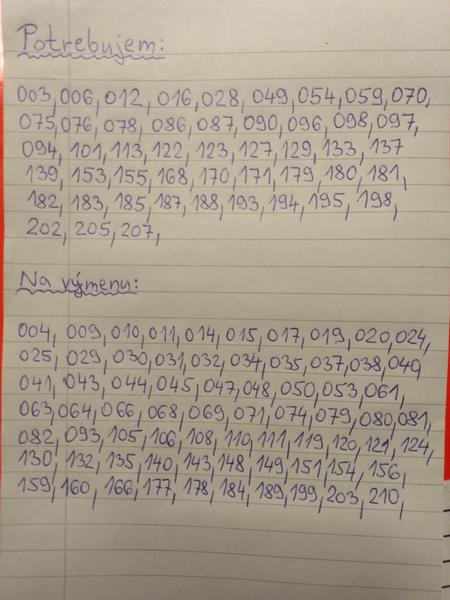 Potrebujem:
003, 006, 012, 016, 028, 049, 054, 059, 070,
075, 076, 078, 086, 087, 090, 096, 098, 097,
094, 101, 113, 122, 123, 127, 129, 133, 137
139, 153, 155, 168, 170, 171, 179, 180, 181,
182, 183, 185, 187, 188, 193, 194, 195, 198,
202, 205, 207,
Na výmenu:
004, 009, 010, 011, 014, 015, 017, 019, 020, 024,
025, 029, 030, 031, 032, 034, 035, 037, 038, 040
041, 043, 044, 045, 047, 048, 050, 053, 061,
063, 064, 066, 068, 069, 071, 074, 079, 080, 081,
082, 093, 105, 106, 108, 110, 111, 119, 120, 121, 124,
130, 132, 135, 140, 143, 148, 149, 151, 154, 156,
159, 160, 166, 177, 178, 184, 189, 199, 203, 210,